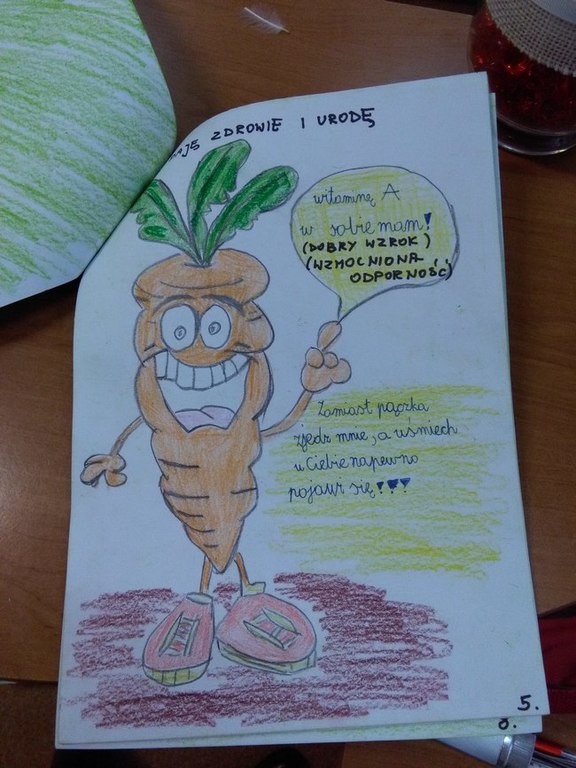 ZDROWIE I URODĘ
witaminę A
w sobie mam!
(DOBRY WZROK)
(WZMOCNIONA
ODPORNOŚĆ)
Zamiast pączka
zjedz mnie, a uśmiech
u Ciebie napewno
pojawi się!!!
5.
8.